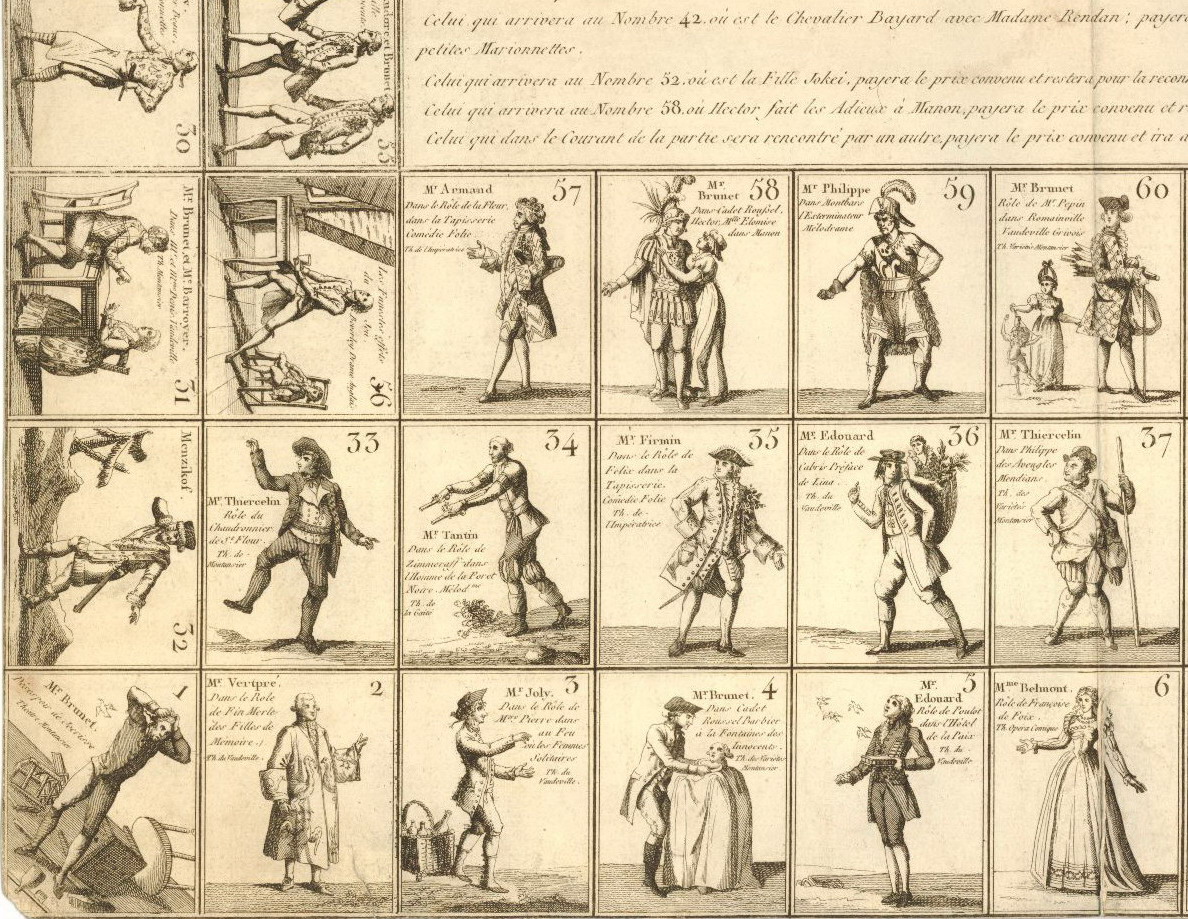 Celui qui arrivera au Nombre 42. où est le Chevalier Bayard avec Madame Rendan; payera
petites Marionnettes.
Celui qui arrivera au Nombre 52. où est la Fille Jokei, payera le prix convenu et restera pour la recon
Celui qui arrivera au Nombre 58. où Hector fait les Adieux à Manon, payera le prix convenu et r
Celui qui dans le Courant de la partie sera rencontré par un autre, payera le prix convenu et ira a
30
55
Mr. Brunet et Mr. Barroyer.
Th. Montansier
31
56
Mr. Armand
57
Dans le Rôle de la Fleur,
dans la Tapisserie
Comédie Folie.
Th. de l'Imperatrice
Mr.
Brunet 58
Dans Cadet Roussel,
Hector, Mlle. Elomire
dans Manon
Mr. Philippe
59
Dans Montbars
l'Exterminateur
Mélodrame
Mr. Brunet
60
Rôle de Mr. Pepin
dans Romainville
Vaudeville Grivois
Th. Variétés Montansier
Menzikof.
32
33
Mr. Thiercelin
Rôle du
Chaudronnier
de St. Flour.
Th. de
Montansier
34
Mr. Tautin
Dans le Rôle de
Zimmeraff dans
l'Homme de la Foret
Noire. Mélod.me
Th. de
la Gaité
Mr. Firmin
35
Dans le Rôle de
Felix dans la
Tapisserie.
Comédie Folie
Th. de
l'Imperatrice
Mr. Edouard
36
Dans le Rôle de
Cabris Préface
de Lina.
Th. du
Vaudeville
Mr. Thiercelin
37
Dans Philippe
des Aveugles
Mendians.
Th. des
Variétés
Montansier
Mr. Brunet
1
Théatre Montansier
Mr. Vertpré.
2
Dans le Role
de Fin Merle
des Filles de
Mémoire.
Th. du Vaudeville.
Mr. Joly.
3
Dans le Rôle de
Mtre. Pierre dans
au Feu
ou les Femmes
Solitaires
Th. du
Vaudeville.
Mr. Brunet.
4
Dans Cadet
Roussel Barbier
à la Fontaine des
Innocents.
Th. des Variétés
Montansier
Mr.
Edouard
5
Rôle de Poulot
dans l'Hôtel
de la Paix
Th. du
Vaudeville
Mme. Belmont.
6
Rôle de Françoise
de Foix.
Th. Opera Comique